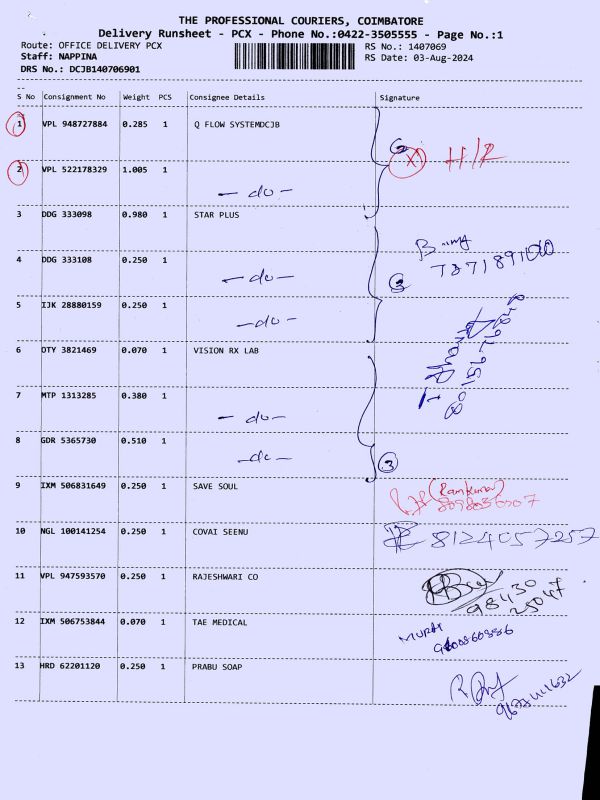 THE PROFESSIONAL COURIERS, COIMBATORE
Delivery Runsheet - PCX - Phone No.:0422-3505555 - Page No.:1
Route: OFFICE DELIVERY PCX RS No.: 1407069
Staff: NAPPINA RS Date: 03-Aug-2024
DRS No.: DCJB140706901
S No Consignment No Weight PCS Consignee Details Signature
1 VPL 948727884 0.285 1 Q FLOW SYSTEMDCJB
2 VPL 522178329 1.005 1
- do -
3 DDG 333098 0.980 1 STAR PLUS
4 DDG 333108 0.250 1
- do -
5 IJK 28880159 0.250 1
- do -
6 OTY 3821469 0.070 1 VISION RX LAB
7 MTP 1313285 0.380 1
- do -
8 GDR 5365730 0.510 1
- do - 3
9 IXM 506831649 0.250 1 SAVE SOUL
(Ramkumar)
10 NGL 100141254 0.250 1 COVAI SEENU 8124057257
11 VPL 947593570 0.250 1 RAJESHWARI CO
98430
25047
12 IXM 506753844 0.070 1 TAE MEDICAL
13 HRD 62201120 0.250 1 PRABU SOAP